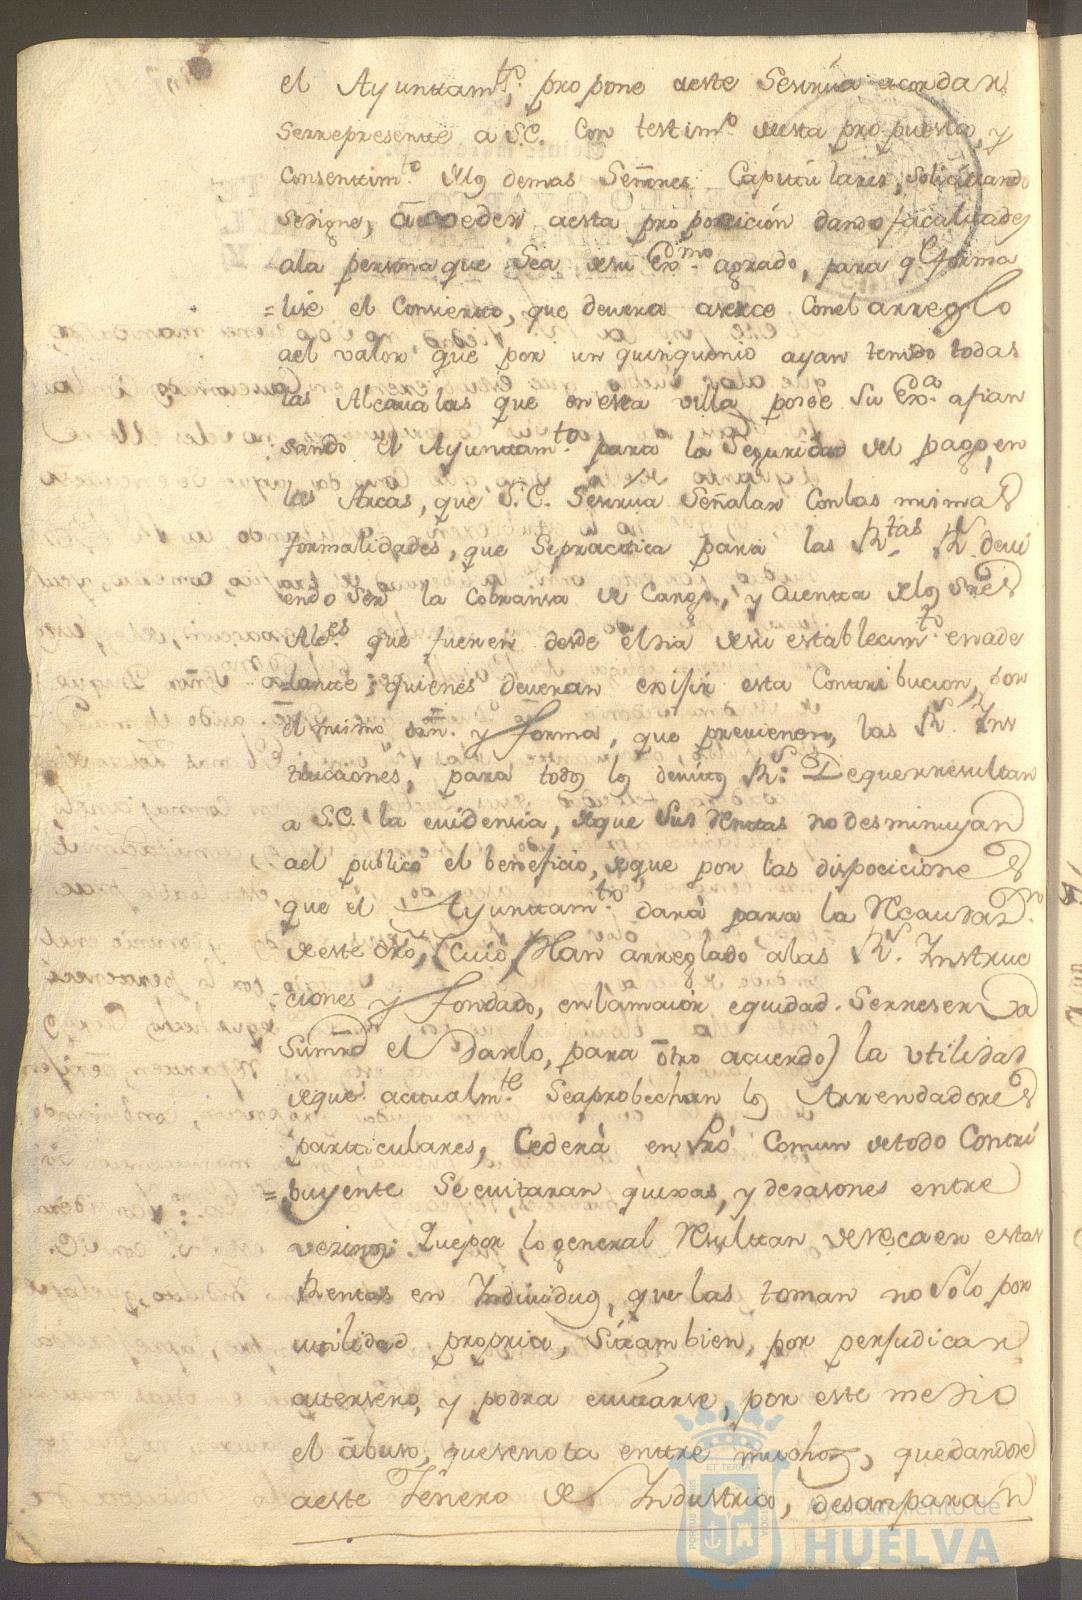 el Ayunttam.to propone aeste Sesirúa acordar
Serrepresente a S.E. Con testim.o desta propuesta, y
Consenttim.to delos demas Señores Capitúlares, solicitando
sedigne, acceder aesta proposición dando facultades
ala persona que Sea desu Exmo agrado, para q.e forma
=lise el Consierto, que devera aserce Conel arreglo
ael valor que por un quinquenio ayan tenido todas
las Alcavalas que en esta villa posee Su Exa. afian
sando el Ayunttam.to para la Seguridad del pago, en
las Arcas, que S.E. Sesirúa Señalar Conlas mismas
formalidades, que Sepracttica para las R.tas R.s devi
endo Ser la Cobransa de Cargo, y Cuenta delos Sres
Alc.es que fueren desde eldia desu establecim.to enade
lante; quienes deveran exisir esta Contribucion, por
el mismo orñ. y forma, que previenen, las R.s Ins
trucciones, para todos los devitos R.s Dequerresultan
a S.E. la evidensia, deque Sus Renttas nodesminuyan
ael publico el beneficio, deque por las disposiciones
que el Ayunttam.to dará para la Recaudaz.n
deeste dro, (Cuio Plan arreglado alas R.s Instruc
ciones y fondado, enlamaior equidad. Serreserva
Sumrd el Darlo, para otro acuerdo) la vtilidad
deque acttualm.te Seaprobechan los Arrendadores
partticulares, Cederá en Pro Comun detodo Contri
=buyente Se evitaran quixas, y desasones entre
vezinos: Quepor lo general Resulttan deReca er estas
Rentas en Individuos, que las toman no Solo por
utilidad propria, Sitambien, por perjudicar
atersero, y podra evitarse, por este medio
el abuso, quesenota enttre muchos, quedandose
aeste Jénero de Industria, desanparan
Ayuntamiento de
HUELVA